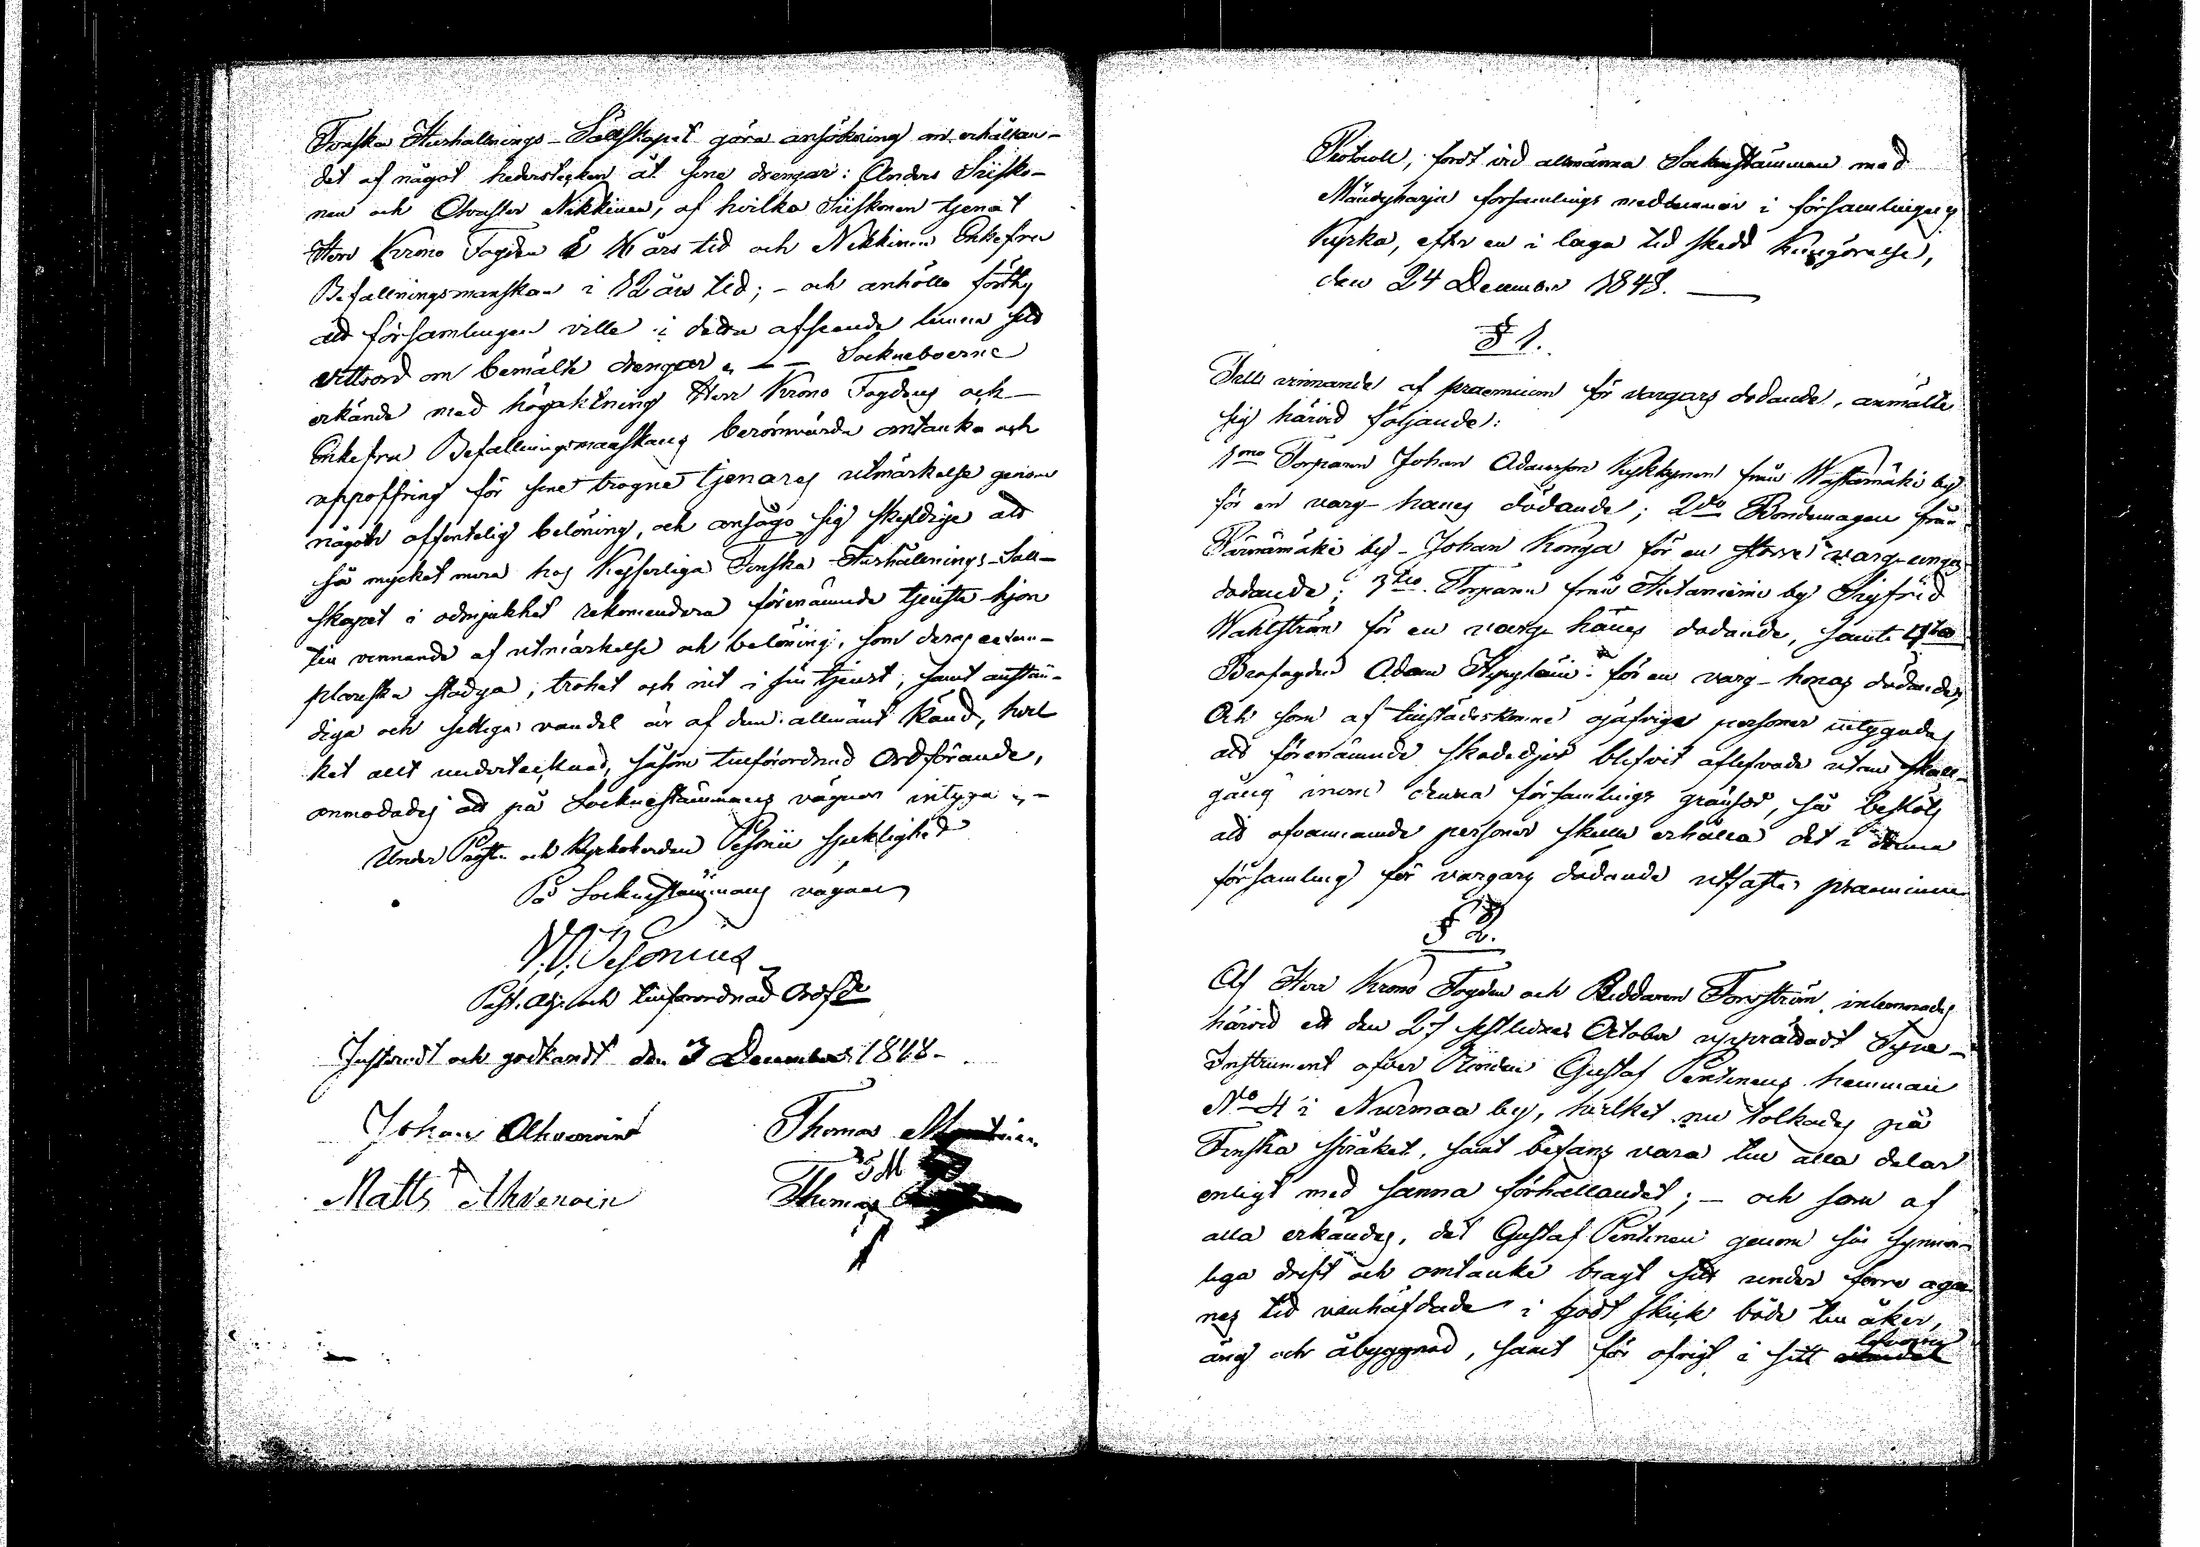 Finska Hushållnings-Sällskapet göra ansökning om erhållan-
det af något hederstecken åt sine drengar: Anders Siisko-
nen och Christer Nikkinen, af hvilka Siiskonen tjenat
Herr Krono Fogden i års tid och Nikkinen Enkefru
Befallningsmanskan i 12 års tid; - och anhöllo förthy
att församlingen ville i detta afseende lemna sitt
vittsord om bemälte drengar. - Socknеboerne
erkände med högaktning Herr Krono Fogdens och
Enkefru Befallningsmanskans berömvärda omtanka och
uppoffring för sine trogne tjenares utmärkelse genom
någon offentelig belöning, och ansågo sig skyldige att
så mycket mera hos Kejserliga Finska Hushållnings-Säll-
skapet i ödmjukhet rekomendera förenämnde tjenste hjon
till vinnande af utmärkelse och belöning, som deras exem-
plariska stadga, trohet och nit i sin tjenst, samt anstän-
diga och sedliga vandel är af dem allmänt känd, hvil
ket allt undertecknad, såsom tillförordnad Ordförande,
anmodades att på Sockneståmmans vägnar intyga. -
Under Prosten och Kyrkoherden Pesonii sjuklighet
På Sockneståmmans vägnar
Pesonius
Past. Adj. och tillförordnad Ordfde
Justeradt och godkandt den 3 December 1848.
Johan Ahvenain Thomas
Matts Ahvenain Thomas
Protocoll, fördt vid allmänna Sockneståmman med
Mäntyharju församlings medlemmar i församlingens
Kyrka, efter en i laga tid skedd kungörelse,
den 24 December 1848.
§ 1.
Till vinnande af praemium för vargars dödande, anmälte
sig härvid följande:
1mo Torparen Johan Adamsson Kyskkynen från Wastamäki by
för en varg-hanes dödande; 2do Bondemågen från
Pärnämäki by - Johan Konga för en större varg-unges
dödande; 3tio Torparen från Hietaniemi by Sigfrid
Wahlström för en varg-hanes dödande, samt 4to
Benfogden Adam för en varg-honas dödande,
Och som af tillstädeskomne ojäfvige personer intygades
att förenämnde skadedjur blifvit aflifvade utan skall-
gång inom denna församlings gränsor, så beslöts
att ofvannämnde personer skulle erhålla det i denna
församling för vargars dödande utfäste praemium
§ 2.
Af Herr Krono Fogden och Riddaren Forsström inlemnades
härvid ett den 27 sistlidne October upprättadt Syne-
Instrument öfver Bonden Gustaf Pentinens hemman
No 4 i Nurmaa by, hvilket nu tolkades på
Finska språket, samt befans vara till alla delar
enligt med sanna förhållandet; - och som af
alla erkändes, det Gustaf Pentinen genom sin synner-
liga drift och omtanke bragt sitt under förre ega-
nes tid vanhäfdade i godt skick både till åker,
äng och åbyggnad, samt för öfrigt i sitt